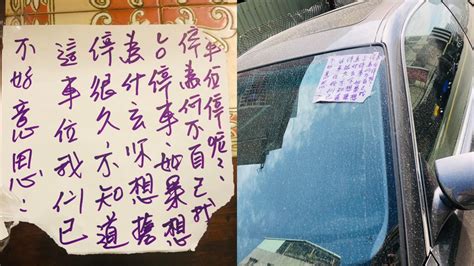 不好意思:
這車位我们已
停很久,不知道
為什么你想
停車,如果想
停為何不自己找
車位停呢??